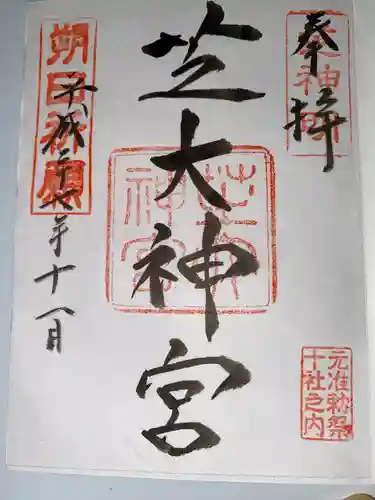 奉拝
元准勅祭
十社之内
芝大神宮
芝大
神宮
朔日祈願
平成二十七年十一月